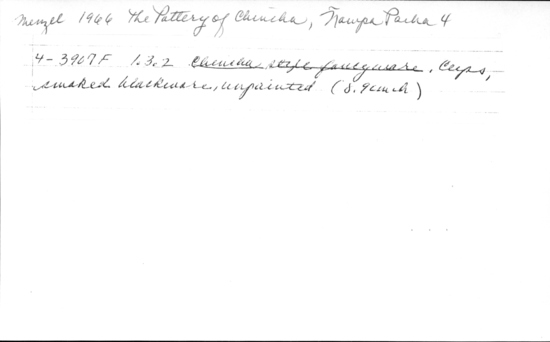 Menzel 1966 The Pottery of Chincha, Ñawpa Pacha 4
4-3907F 1.3.2 Chincha style fancyware, Cups,
smoked blackware, unpainted (8.9cm h)